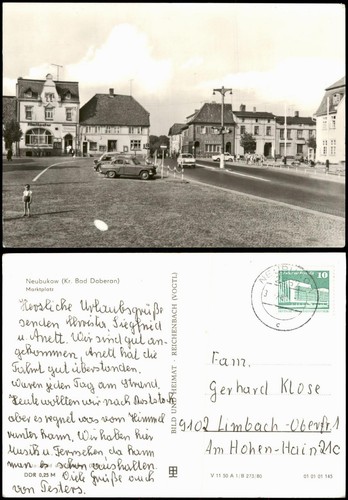 Neubukow (Kr. Bad Doberan)
Marktplatz
Herzliche Urlaubsgrüße
senden Christa, Siegfried
u. Anett. Wir sind gut an-
gekommen, Anett hat die
Fahrt gut überstanden.
Waren jeden Tag am Strand.
Heute wollten wir nach Rostock
aber es regnet was vom Himmel
runter kann. Wir haben hier
Musik u. Fernsehen da kann
man es schon aushalten.
Viele Grüße auch
von
DDR 0,20 M
BILD UND HEIMAT · REICHENBACH (VOGTL)
NEUBU
10
Fam.
Gerhard Klose
9102 Limbach-Oberfr. 1
Am Hohen-Hain 21c
V 11 50 A 1/B 273/80
01 01 01 145